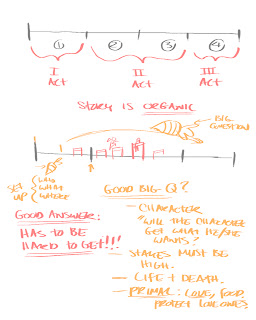 ① ② ③ ④
I II III
ACT ACT ACT
STORY IS ORGANIC
BIG
QUESTION
SET
UP
WHO
WHAT
WHERE
GOOD BIG Q?
GOOD ANSWER:
HAS TO BE
HARD TO GET!!!
— CHARACTER
"WILL THE CHARACTER
GET WHAT HE/SHE
WANTS?
— STAGES MUST BE
HIGH.
— LIFE + DEATH.
— PRIMAL: LOVE, FOOD,
PROTECT LOVE ONES.